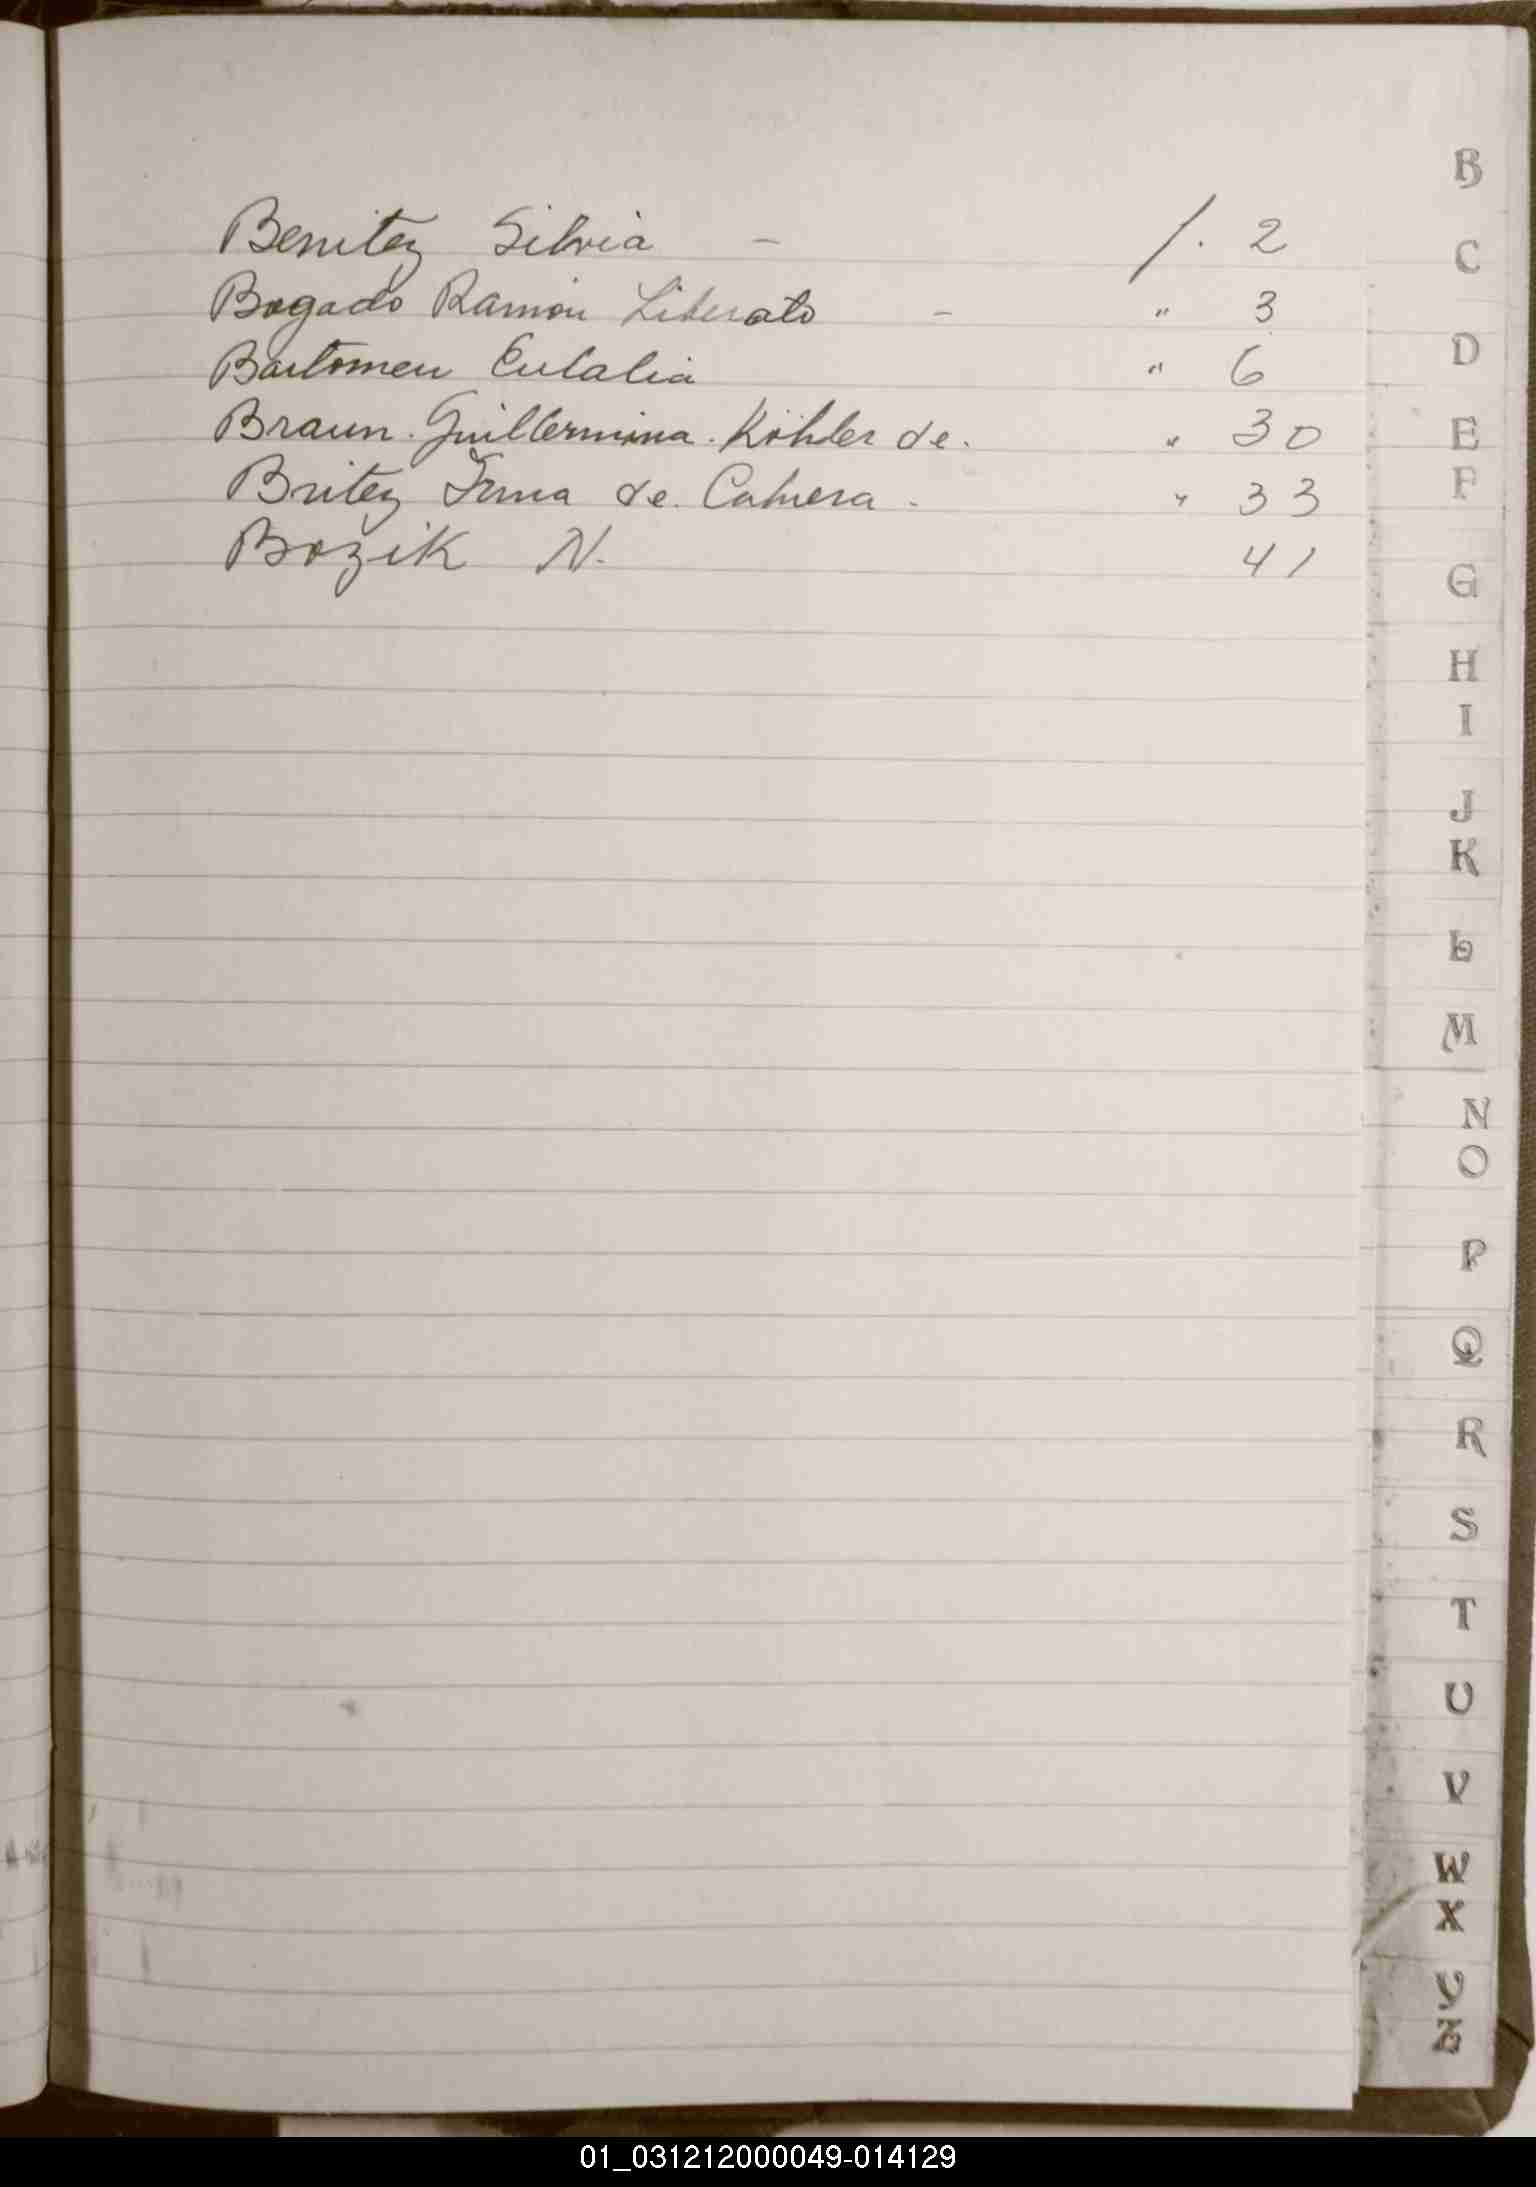 Benitez Silvia - /. 2
Bogado Ramón Liberato - " 3
Bartomeu Eulalia " 6
Braun. Guillermina. Köhler de. " 30
Britez Irma de. Cabrera - " 33
Bozik N. 41
B
C
D
E
F
G
H
I
J
K
L
M
N
O
P
Q
R
S
T
U
V
W
X
Y
Z
01_031212000049-014129